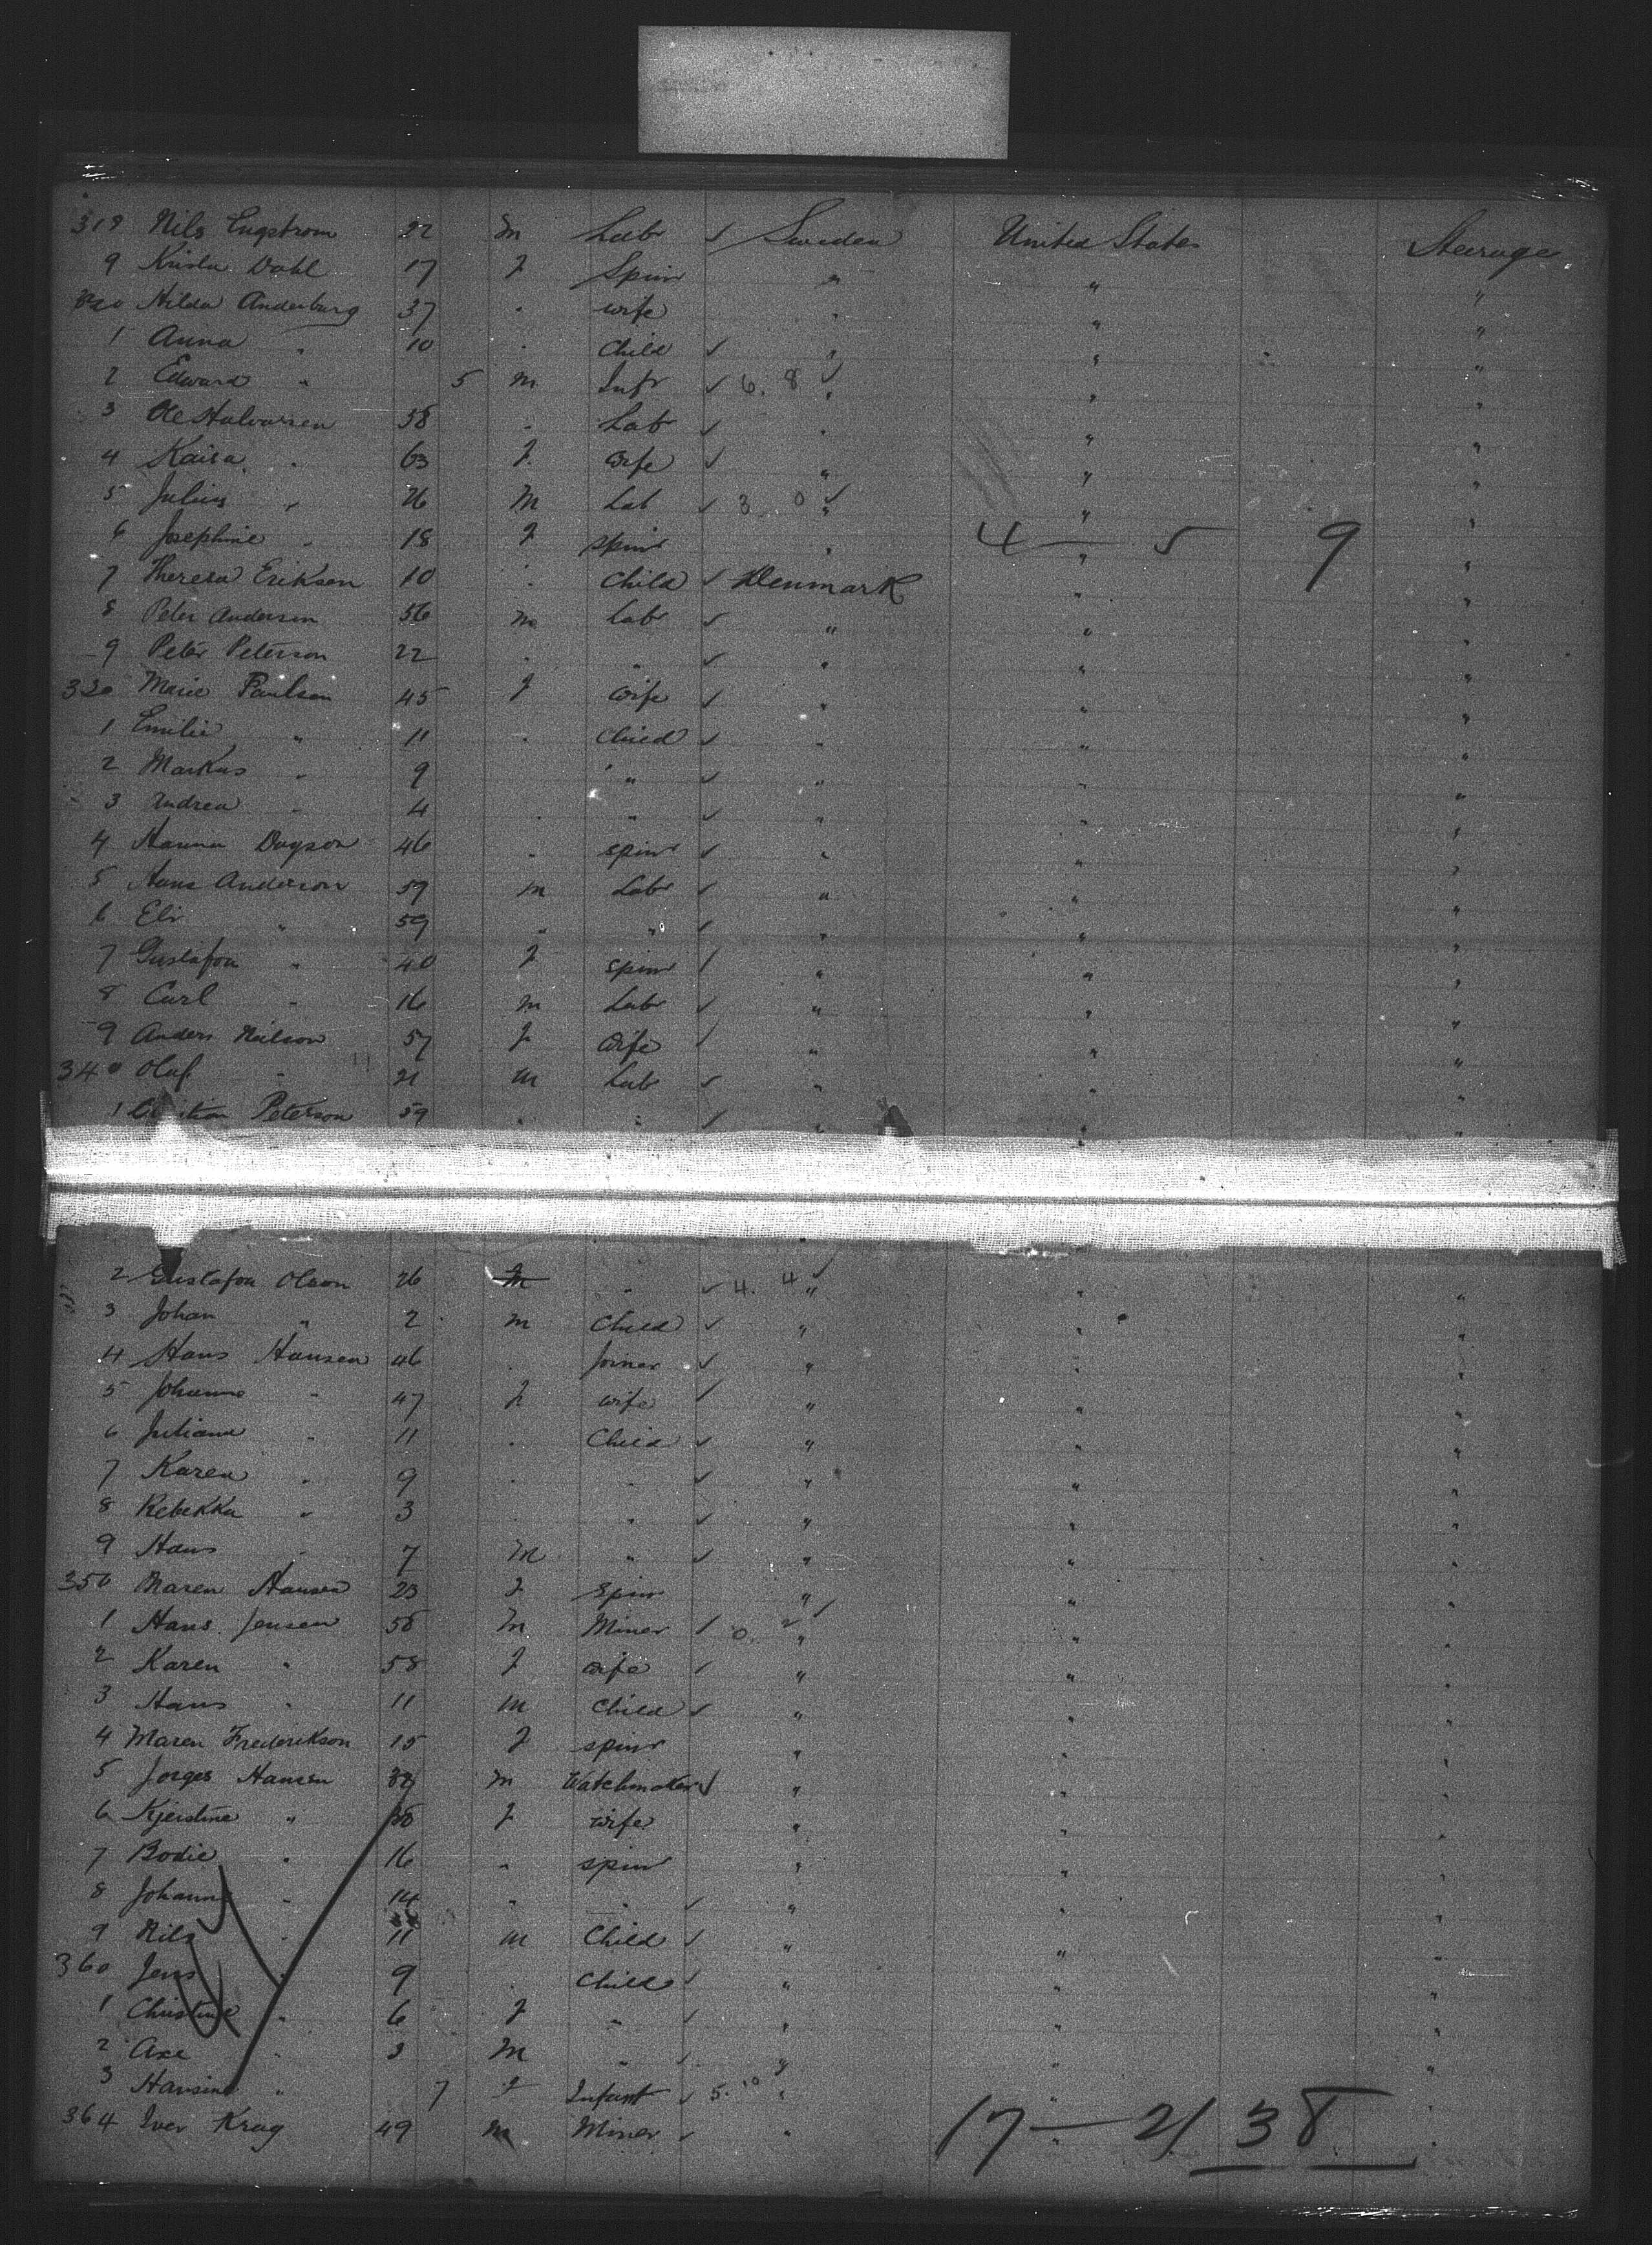 318 Nils Engstrom 22 m Labr ✓ Sweden United States Steerage
9 Krista Dahl 17 f Spinr " " "
320 Hilda Anderburg 37 " wife " " "
1 Anna " 10 " Child ✓ " " "
2 Edward " 5 m Inft ✓ 6. 8 ✓ " " "
3 Ole Halvorsen 58 " Labr ✓ " " "
4 Kaisa " 63 f wife ✓ " " "
5 Julius " 26 m Lab ✓ 3 0 ✓ " " "
6 Josephine " 18 f spinr " " 4 — 5 9 "
7 Theresa Eriksen 10 " Child ✓ Denmark " "
8 Peter Andersen 56 m Labr ✓ " " "
9 Peter Peterson 22 " " ✓ " " "
330 Marie Paulsen 45 f wife ✓ " " "
1 Emilie " 11 " Child ✓ " " "
2 Markus " 9 " ✓ " " "
3 Andrea " 4 " " ✓ " " "
4 Hanna Dayson 46 " spinr ✓ " " "
5 Hans Anderson 59 m Labr ✓ " " "
6 Eli " 59 " " ✓ " " "
7 Gustafva " 40 f spinr ✓ " " "
8 Carl " 16 m Labr ✓ " " "
9 Anders Neilson 57 f wife ✓ " " "
340 Olaf " 21 m Lab ✓ " " "
1 Peterson 59 " " ✓ " " "
2 Gustafva Olson 26 m " ✓ 4. 4 ✓ " " "
3 Johan " 2 m Child ✓ " " "
4 Hans Hansen 46 " Joiner ✓ " " "
5 Johanne " 47 f wife ✓ " " "
6 Juliane " 11 " Child ✓ " " "
7 Karen " 9 " " ✓ " " "
8 Rebekka " 3 " " ✓ " " "
9 Hans " 7 m " ✓ " " "
350 Maren Hansen 23 f Spinr " " "
1 Hans Jensen 58 m Miner ✓ 0. 2 ✓ " " "
2 Karen " 58 f wife ✓ " " "
3 Hans " 11 m Child ✓ " " "
4 Maren Frederikson 15 f spinr " " "
5 Jorges Hansen m Watchmaker ✓ " " "
6 Kjerstine " 38 f wife " " "
7 Bodie " 16 " spinr " " "
8 Johanne " 14 " " ✓ " " "
9 Nils " 11 m Child ✓ " " "
360 Jens " 9 " Child ✓ " " "
1 Christine " 6 f " ✓ " " "
2 Axe " 3 m " ✓ " " "
3 Hansine " 7 f Infant ✓ 5. 10 " " "
364 Iver Krag 49 m Miner ✓ " " 17 — 21 38 "